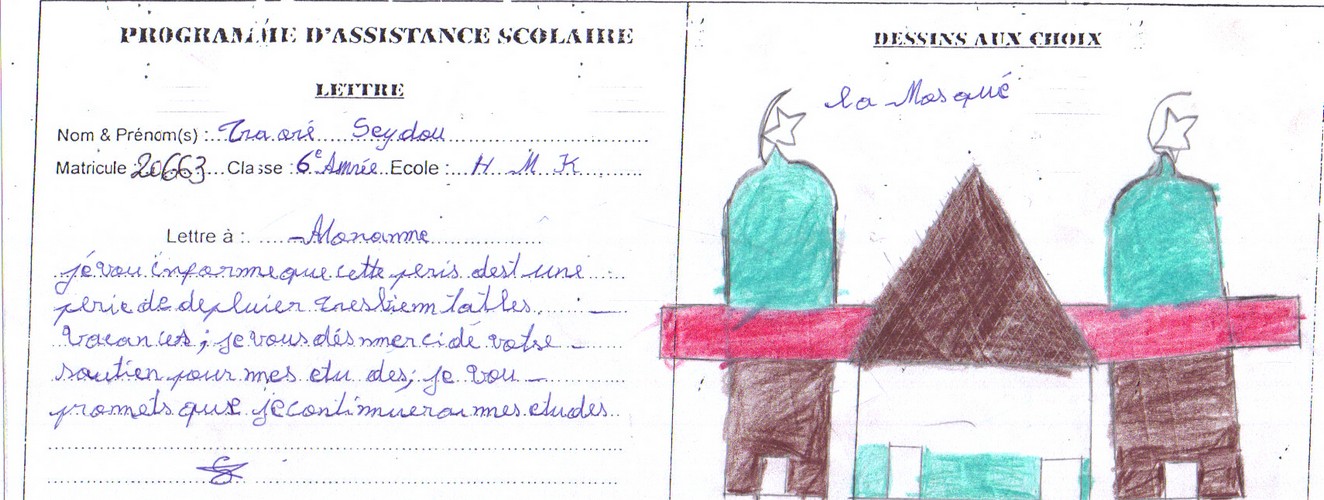 PROGRAMME D'ASSISTANCE SCOLAIRE
LETTRE
Nom & Prénom(s) : Traoré Seydou
Matricule : 20663 Classe : 6e Année Ecole : H M K
Lettre à : Monamie
je vou informe que cette peris dest une
perie de depluier tresbiem
vacances ; je vous dés mercide votse
soutien pour mes etu des; je vou
promets que je continuerai mes etudes
DESSINS AUX CHOIX
la Mosqué